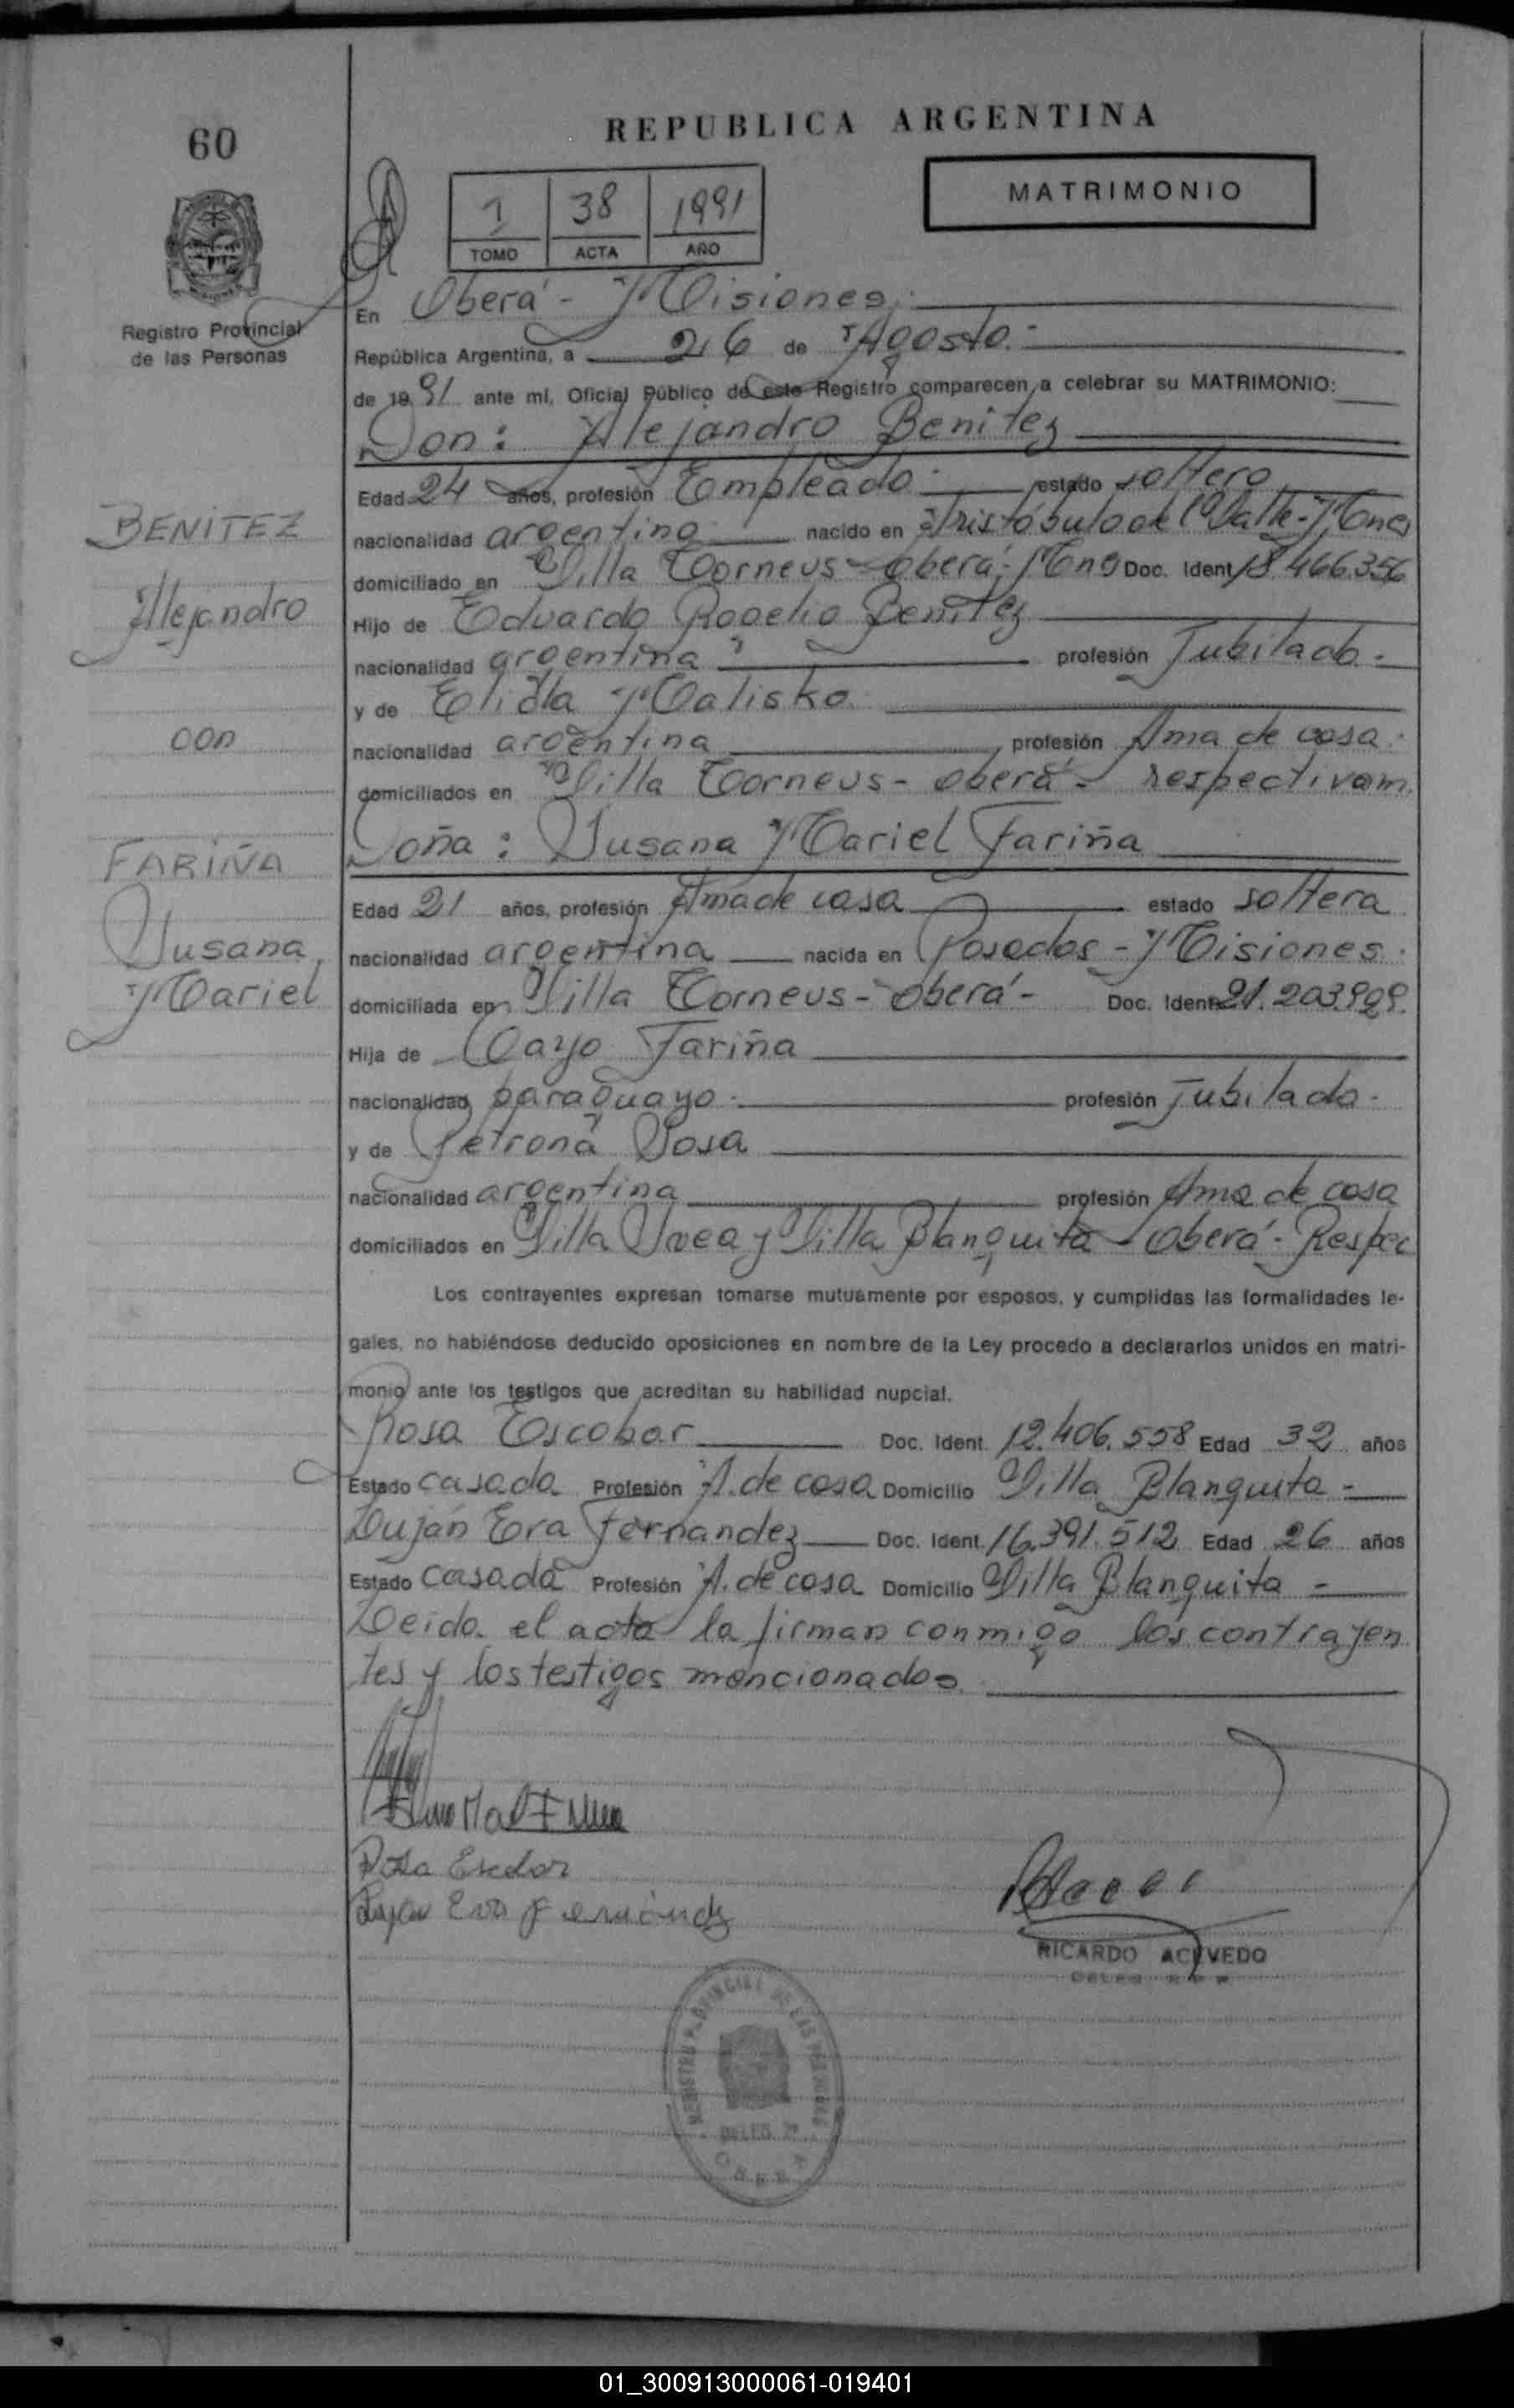 60
REPUBLICA ARGENTINA
MATRIMONIO
1 38 1991
TOMO ACTA AÑO
Registro Provincial
de las Personas
En Oberá - Misiones.
República Argentina, a 26 de Agosto.-
de 1991 ante mí, Oficial Público de este Registro comparecen a celebrar su MATRIMONIO:
Don: Alejandro Benitez
Edad 24 años, profesión Empleado.- estado soltero
BENITEZ
nacionalidad argentino nacido en Aristóbulo del Valle - Mnes
domiciliado en Villa Torneus - Oberá - Mns Doc. Ident. 18.466.356
Alejandro
Hijo de Eduardo Rogelio Benitez
nacionalidad argentina profesión Jubilado.-
y de Elida Malisko.
con
nacionalidad argentina profesión Ama de casa.
domiciliados en Villa Torneus - Oberá - respectivam.
Doña: Susana Mariel Fariña
FARIÑA
Edad 21 años, profesión Ama de casa estado soltera
Susana
nacionalidad argentina nacida en Posadas - Misiones.
Mariel
domiciliada en Villa Torneus - Oberá - Doc. Ident. 21.203.909.
Hija de Cayo Fariña
nacionalidad paraguayo.- profesión Jubilado.
y de Petrona Sosa
nacionalidad argentina profesión Ama de casa
domiciliados en Villa Svea y Villa Blanquita - Oberá - Respec
Los contrayentes expresan tomarse mutuamente por esposos, y cumplidas las formalidades le-
gales, no habiéndose deducido oposiciones en nombre de la Ley procedo a declararlos unidos en matri-
monio ante los testigos que acreditan su habilidad nupcial.
Rosa Escobar Doc. Ident. 12.406.558 Edad 32 años
Estado casada Profesión A. de casa Domicilio Villa Blanquita -
Luján Eva Fernandez Doc. Ident. 16.391.512 Edad 26 años
Estado casada Profesión A. de casa Domicilio Villa Blanquita -
Leida el acta la firman conmigo los contrayen
tes y los testigos mencionados.
Rosa Escobar
Lujan Eva Fernández
RICARDO ACEVEDO
REGISTRO PROVINCIAL DE LAS PERSONAS
DELEG. 
OBERA
01_300913000061-019401